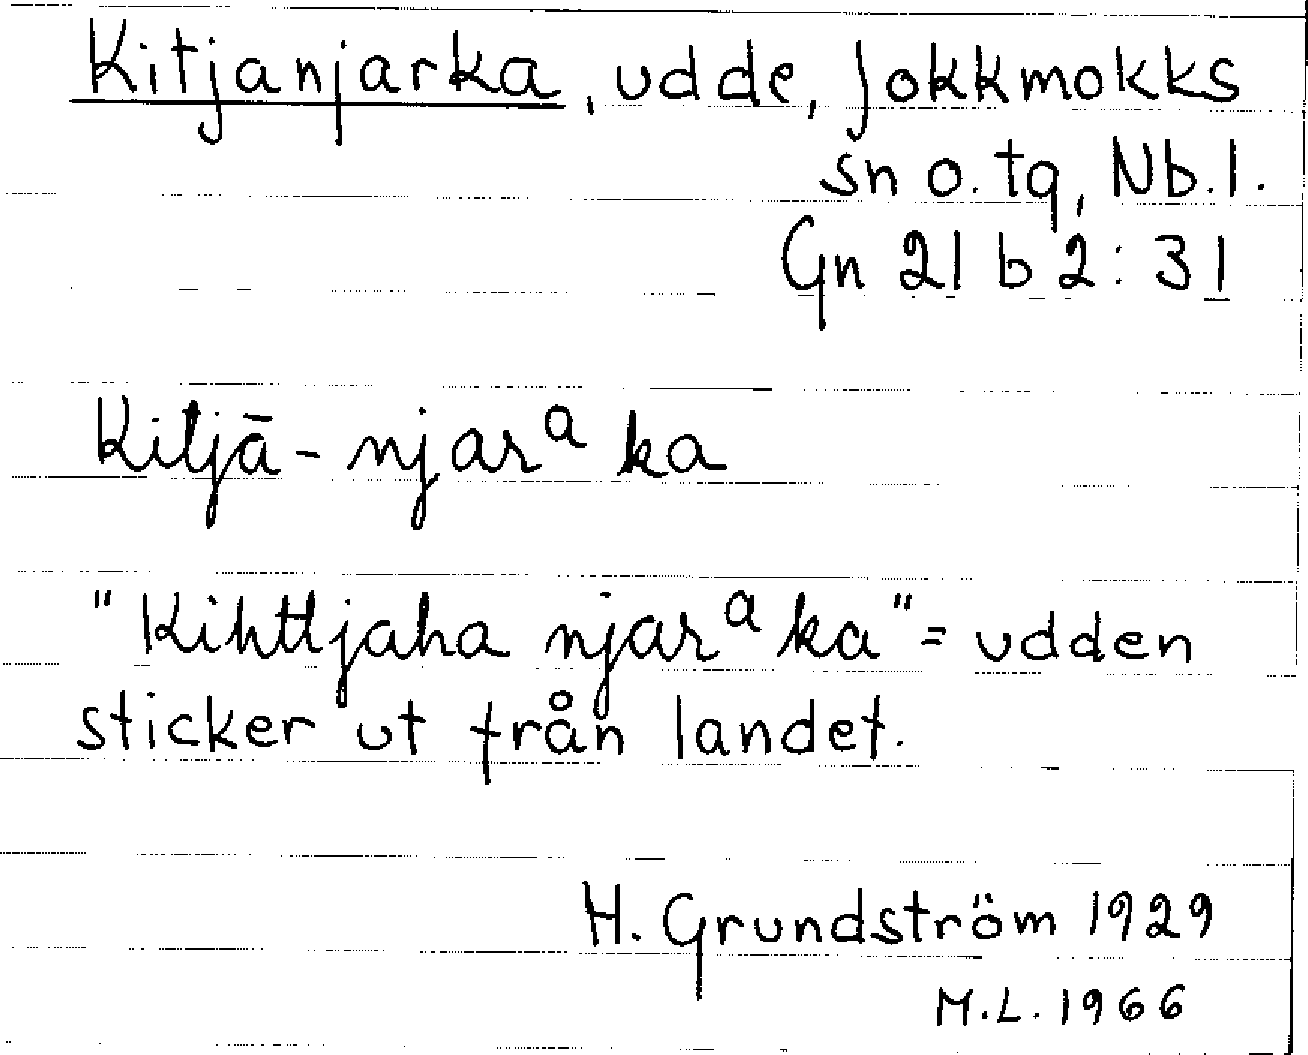 Kitjanjarka, udde, Jokkmokks
sn o. tg, Nb.l.
Gn 21 b 2:31
Kitjā-njarᵃka
"Kihttjaha njarᵃka" = udden
sticker ut från landet.
H. Grundström 1929
M.L. 1966